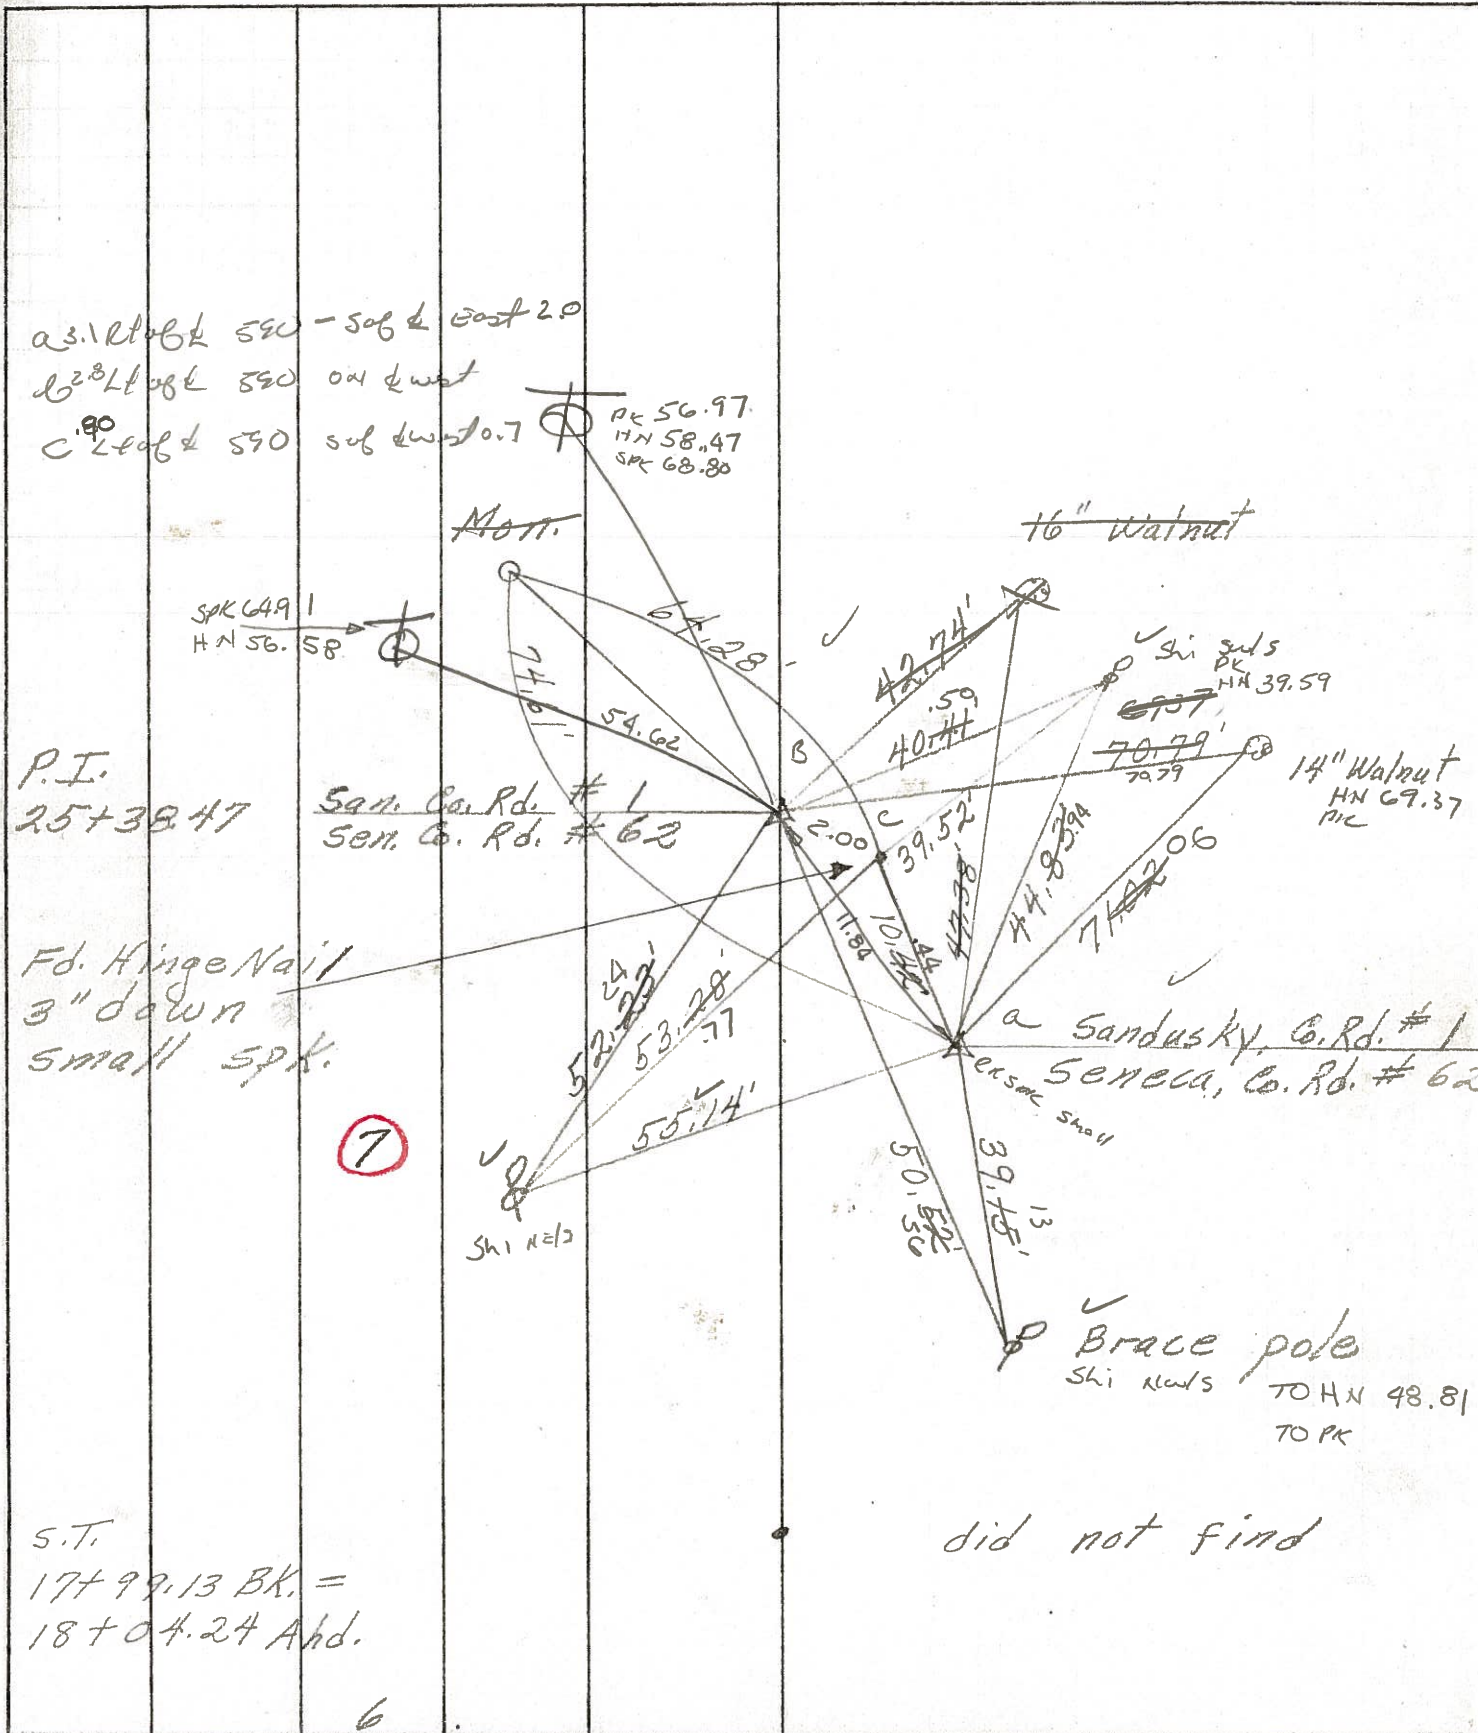 a 3.1 Rt of ℄ 590 - S of ℄ East 2.0
b 2.8 Lt of ℄ 590 on ℄ west
C .90 Lt of ℄ 590 S of ℄ west 0.7
PK 56.97
HN 58.47
SPK 68.80
Mon.
16" Walnut
SPK 64.91
HN 56.58
74.61'
54.62
42.74'
.50
40.41
Shi
PK
HN 39.59
69.37
70.79'
70.79
14" Walnut
HN 69.37
PK
P.I.
25+38.47
San. Co. Rd. # 1
Sen. Co. Rd. # 62
B
2.00
C
39.52'
11.84
.44
47.38'
.94
06
Fd. Hinge Nail
3" down
small spk.
24
53.28'
.77
55.14'
a
Sandusky, Co. Rd. # 1
Seneca, Co. Rd. # 62
small
7
Shi
50.52'
56
39.15'
13
Brace pole
Shi
TO HN 48.81
TO PK
did not find
S.T.
17+99.13 BK. =
18+04.24 Ahd.
6